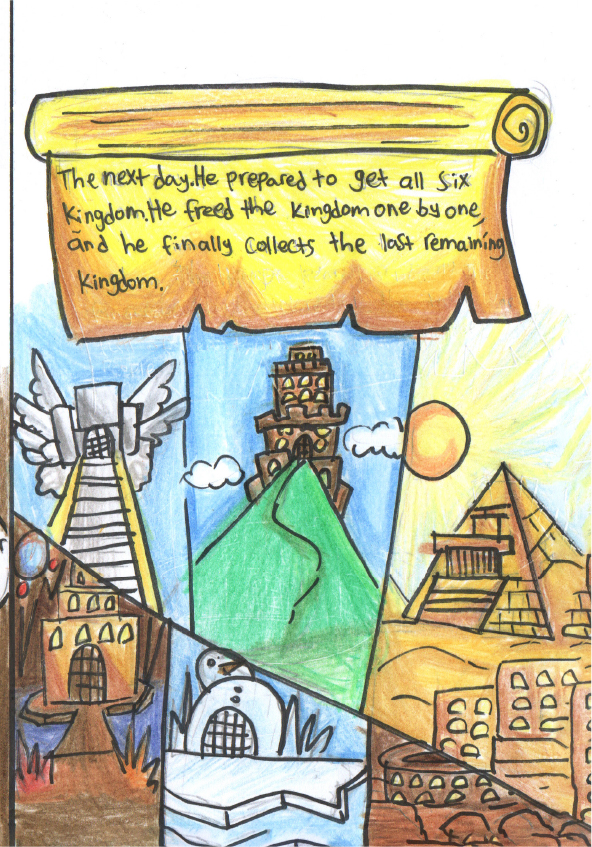 The next day.He prepared to get all six
Kingdom.He freed the kingdom one by one,
and he finally collects the last remaining
Kingdom.